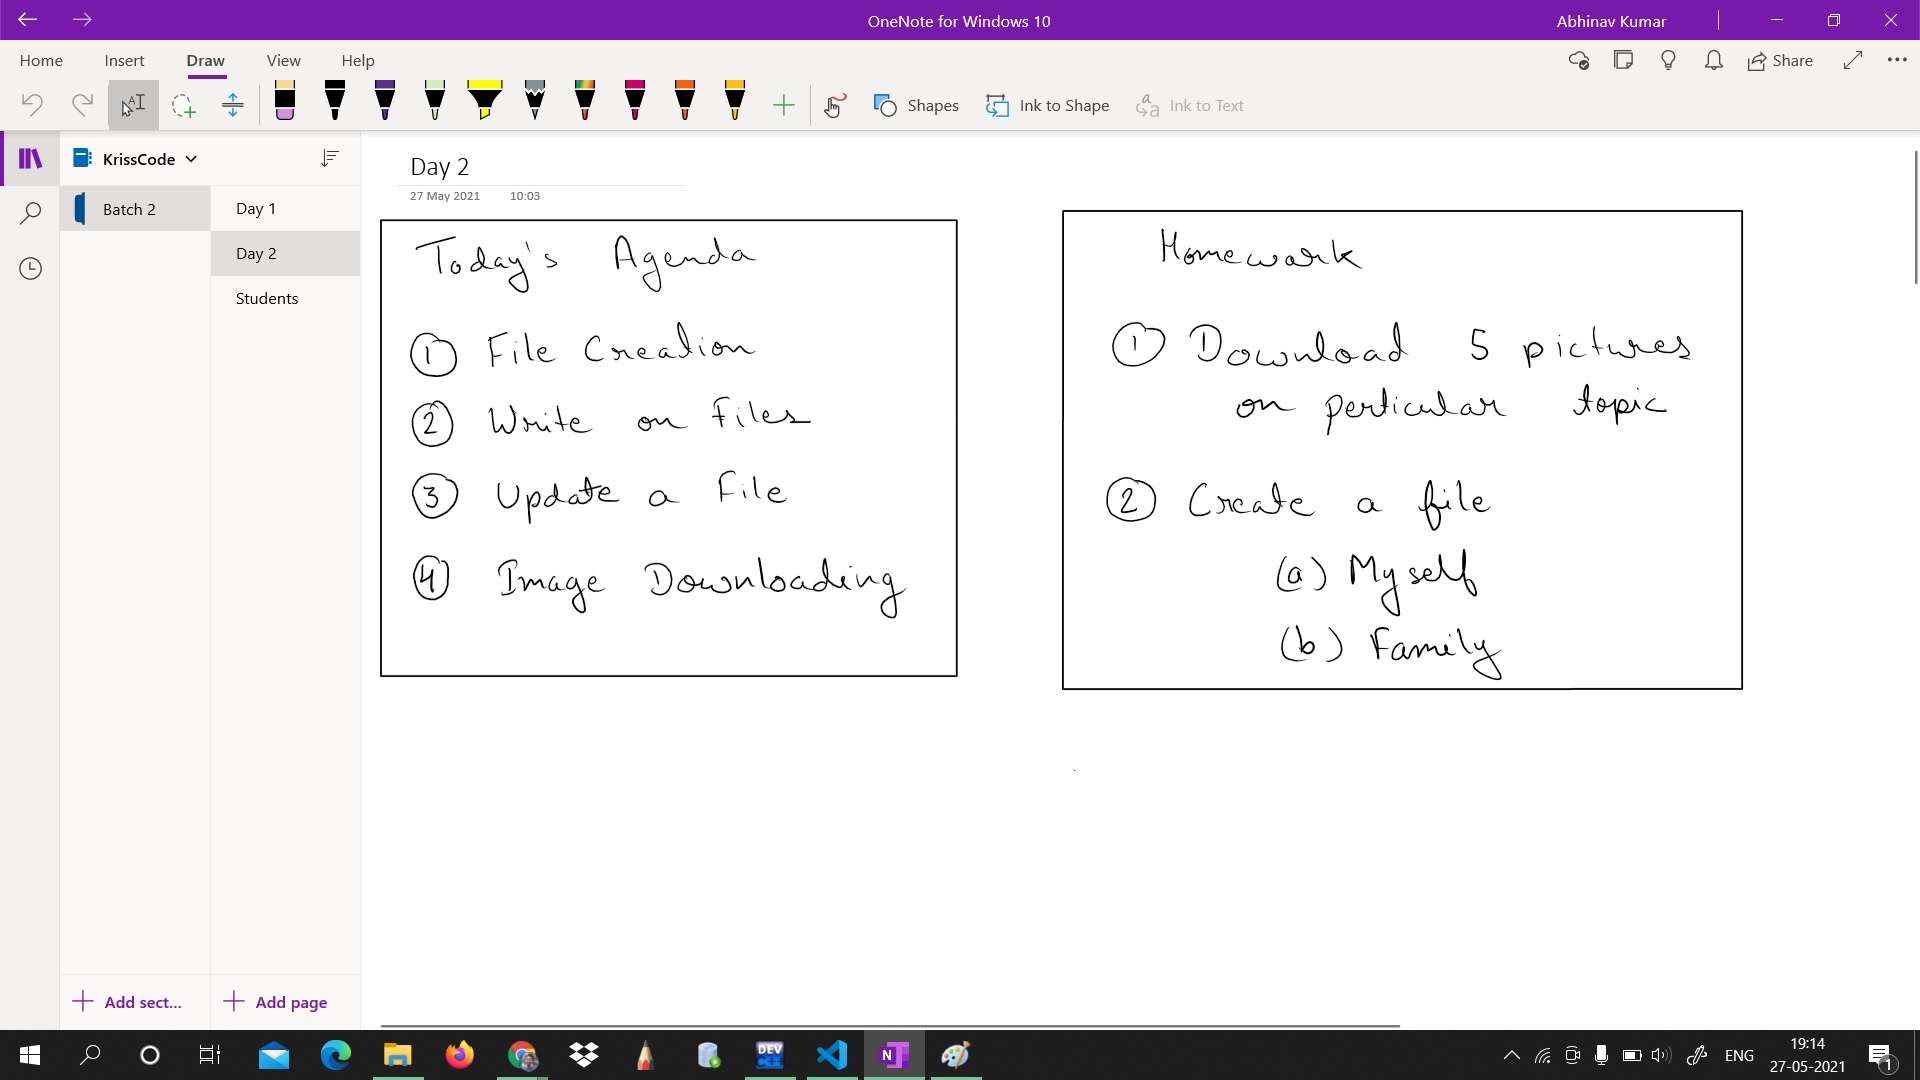 OneNote for Windows 10
Abhinav Kumar
Home Insert Draw View Help
Share
Shapes Ink to Shape Ink to Text
KrissCode
Batch 2
Day 1
Day 2
Students
Day 2
27 May 2021 10:03
Today's Agenda
1 File Creation
2 Write on Files
3 Update a File
4 Image Downloading
Homework
1 Download 5 pictures
on perticular topic
2 Create a file
(a) Myself
(b) Family
Add sect...
Add page
DEV
C++
N
ENG
19:14
27-05-2021
1